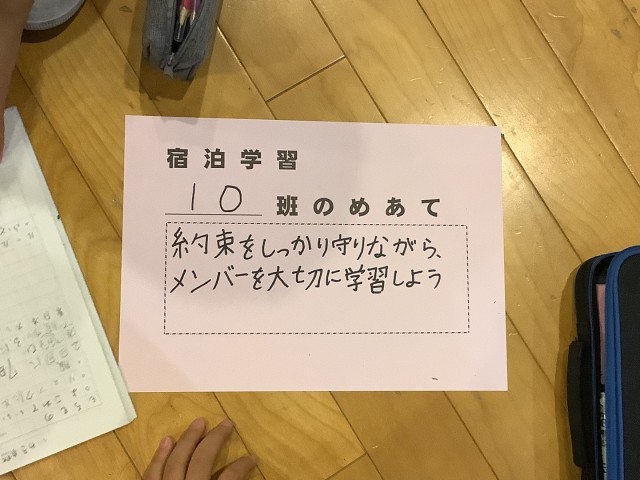 宿泊学習
10 班のめあて
約束をしっかり守りながら、
メンバーを大切に学習しよう